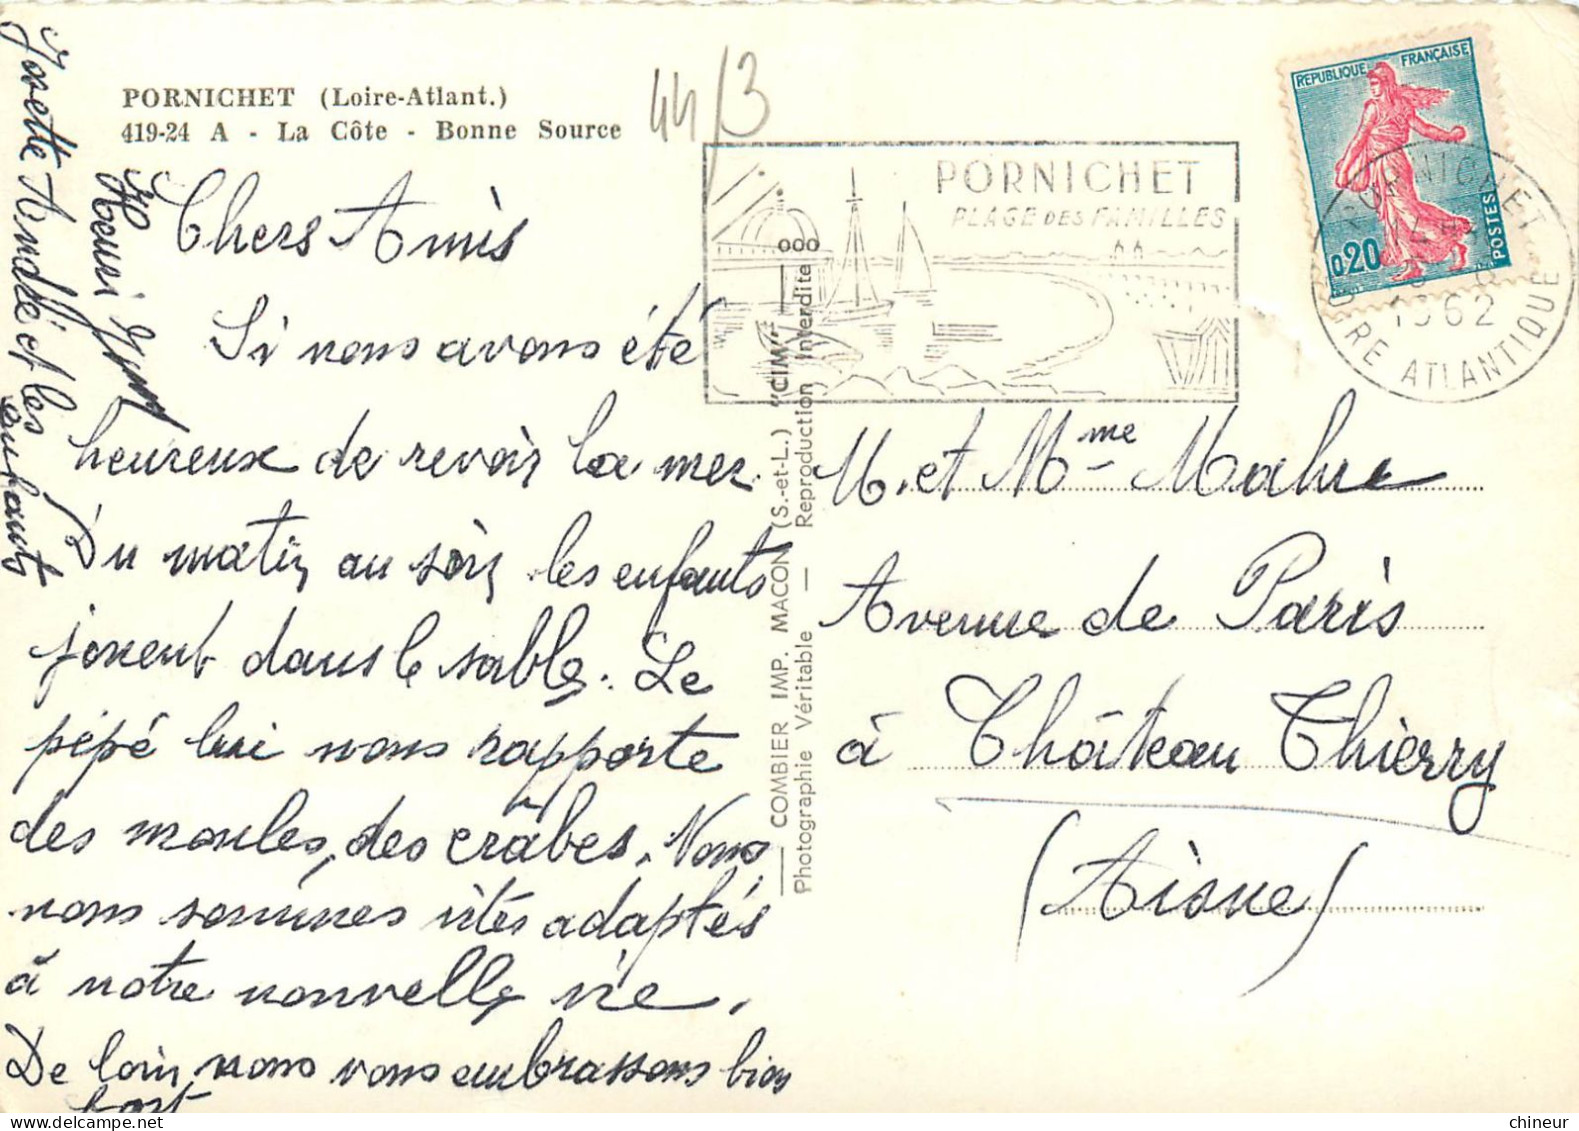 PORNICHET (Loire-Atlant.)
419-24 A - La Côte - Bonne Source
44/3
Chers Amis
Si nous avons été
heureux de revoir la mer.
Du matin au soir les enfants
jouent dans le sable. Le
pépé lui nous rapporte
des moules, des crâbes. Nous
nous sommes vites adaptés
à notre nouvelle vie.
De loin nous vous embrassons bien
fort
Josette André et les
enfants
Henri
COMBIER IMP. MACON (S.-et-L.) "CIM"
Photographie Véritable — Reproduction Interdite
PORNICHET
PLAGE DES FAMILLES
REPUBLIQUE FRANÇAISE
0,20
POSTES
PORNICHET
1962
LOIRE ATLANTIQUE
M. et Mme Mahue
Avenue de Paris
à Château Thierry
(Aisne)
chineur